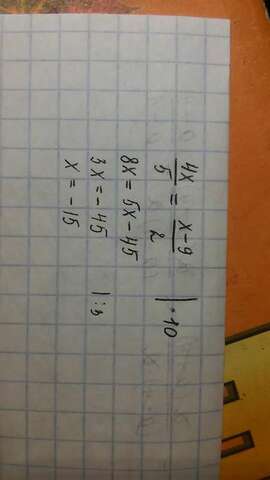 4x/5 = x-9/2 | ·10
8x = 5x - 45
3x = - 45 | :3
x = - 15